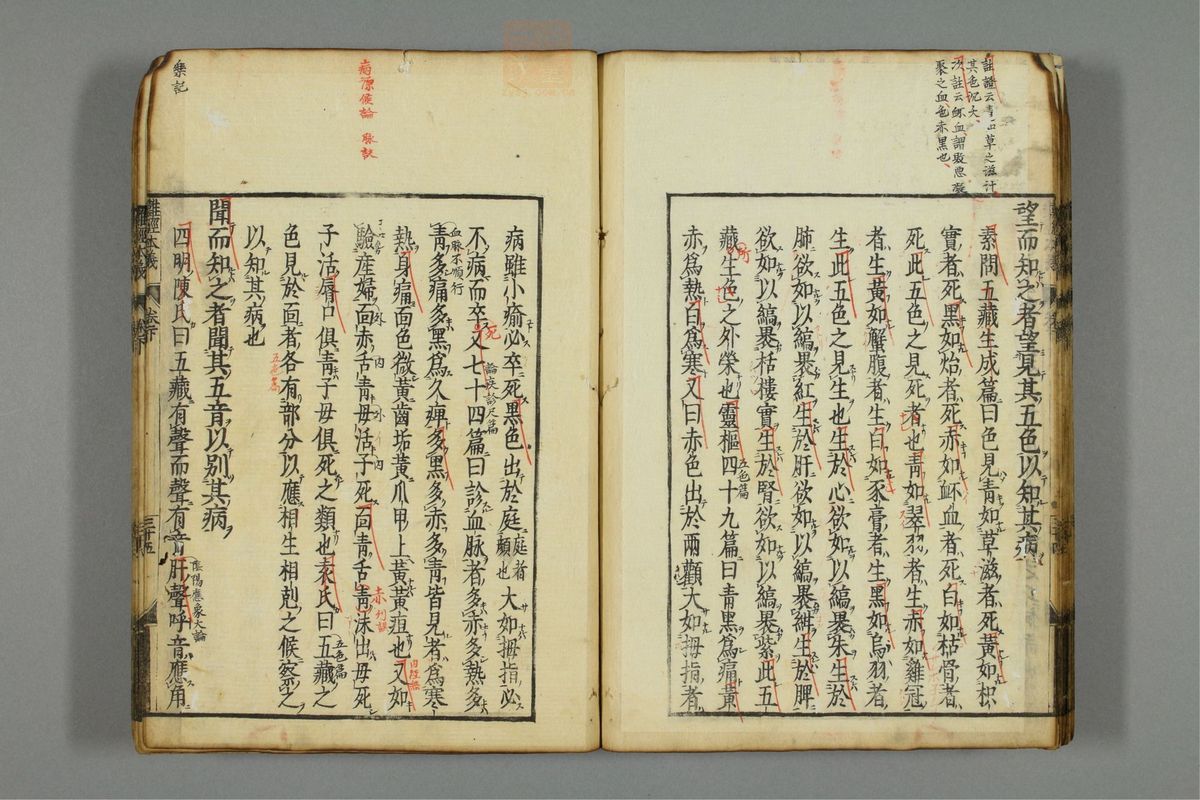 望而知之者望見其五色以知其病
素問五藏生成篇曰色見青如草滋者死黃如枳
實者死黑如炲者死赤如衃血者死白如枯骨者
死此五色之見死者也青如翠羽者生赤如雞冠
者生黃如蟹腹者生白如豕膏者生黑如烏羽者
生此五色之見生也生於心欲如以縞裹朱生於
肺欲如以縞裹紅生於肝欲如以縞裹紺生於脾
欲如以縞裹栝樓實生於腎欲如以縞裹紫此五
藏生色之外榮也靈樞四十九篇曰青黑為痛黃
赤為熱白為寒又曰赤色出於兩顴大如拇指者
病雖小愈必卒死黑色出於庭庭者顏也大如拇指必
不病而卒又七十四篇曰診血脉者多赤多熱多
青多痛多黑為久痹多黑多赤多青皆見者為寒
熱身痛面色微黃齒垢黃爪甲上黃黃疸也又如
驗產婦面赤舌青母活子死面青舌青沫出母死
子活脣口俱青子母俱死之類也袁氏曰五藏之
色見於面者各有部分以應相生相剋之候察之
以知其病也
聞而知之者聞其五音以別其病
四明陳氏曰五藏有聲而聲有音肝聲呼音應角
其色沉夭
次註云衃血謂敗惡凝
聚之血色赤黑也
五色篇
死
論疾診尺篇
血脉不順行
病源候論 脉訣
赤
五色篇
五色篇
陰陽應象大論
樂記
難經本義
三十五